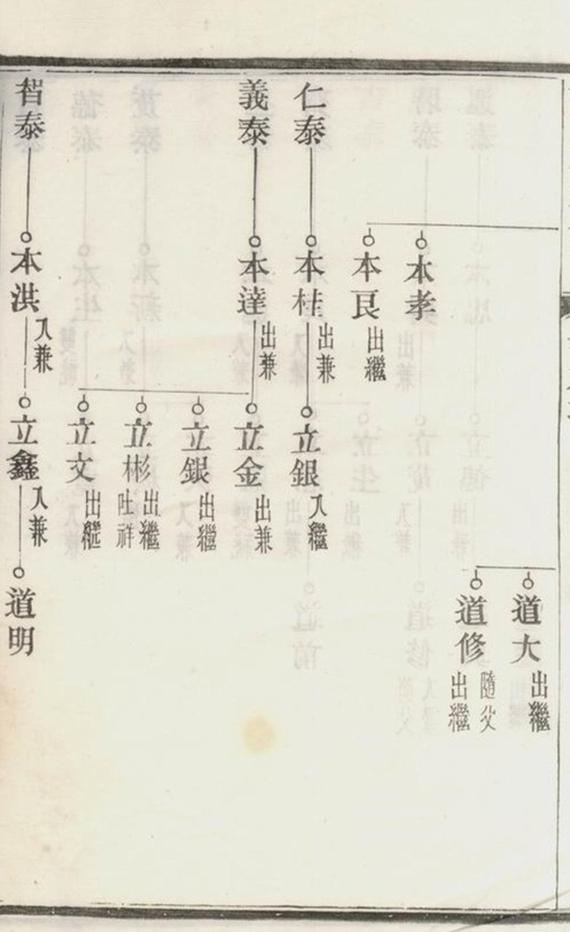 道大
出繼
道修
隨父
出繼
本孝
本良
出繼
仁泰
本桂
出兼
立銀
入繼
義泰
本達
出兼
立金
出兼
立銀
出繼
立彬
出繼
吐祥
立文
出繼
智泰
本洪
入兼
立鑫
入兼
道明